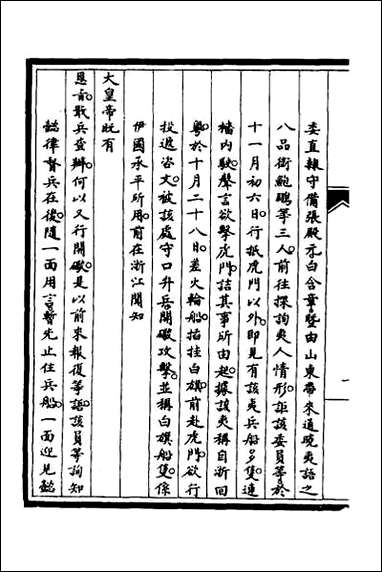 委直隸守備張殿元白含章暨由山東帶來通曉夷語之
八品銜鮑鵬等三人前往探詢夷人情形詎該委員等於
十一月初六日行抵虎門以外即見有該夷兵船多隻連
檣內駛聲言欲擊虎門詰其事所由起據該夷稱自浙回
粵於十月二十八日差火輪船掐挂白旗前赴虎門欲行
投遞咨文被該處守口升兵開礮攻擊並稱白旗船隻係
伊國承平所用前在浙江聞知
大皇帝既有
恩旨敢兵查辦何以又行開礮是以前來報復等語該員等詢知
懿律督兵在後隨一面用言暫先止住兵船一面迎見懿